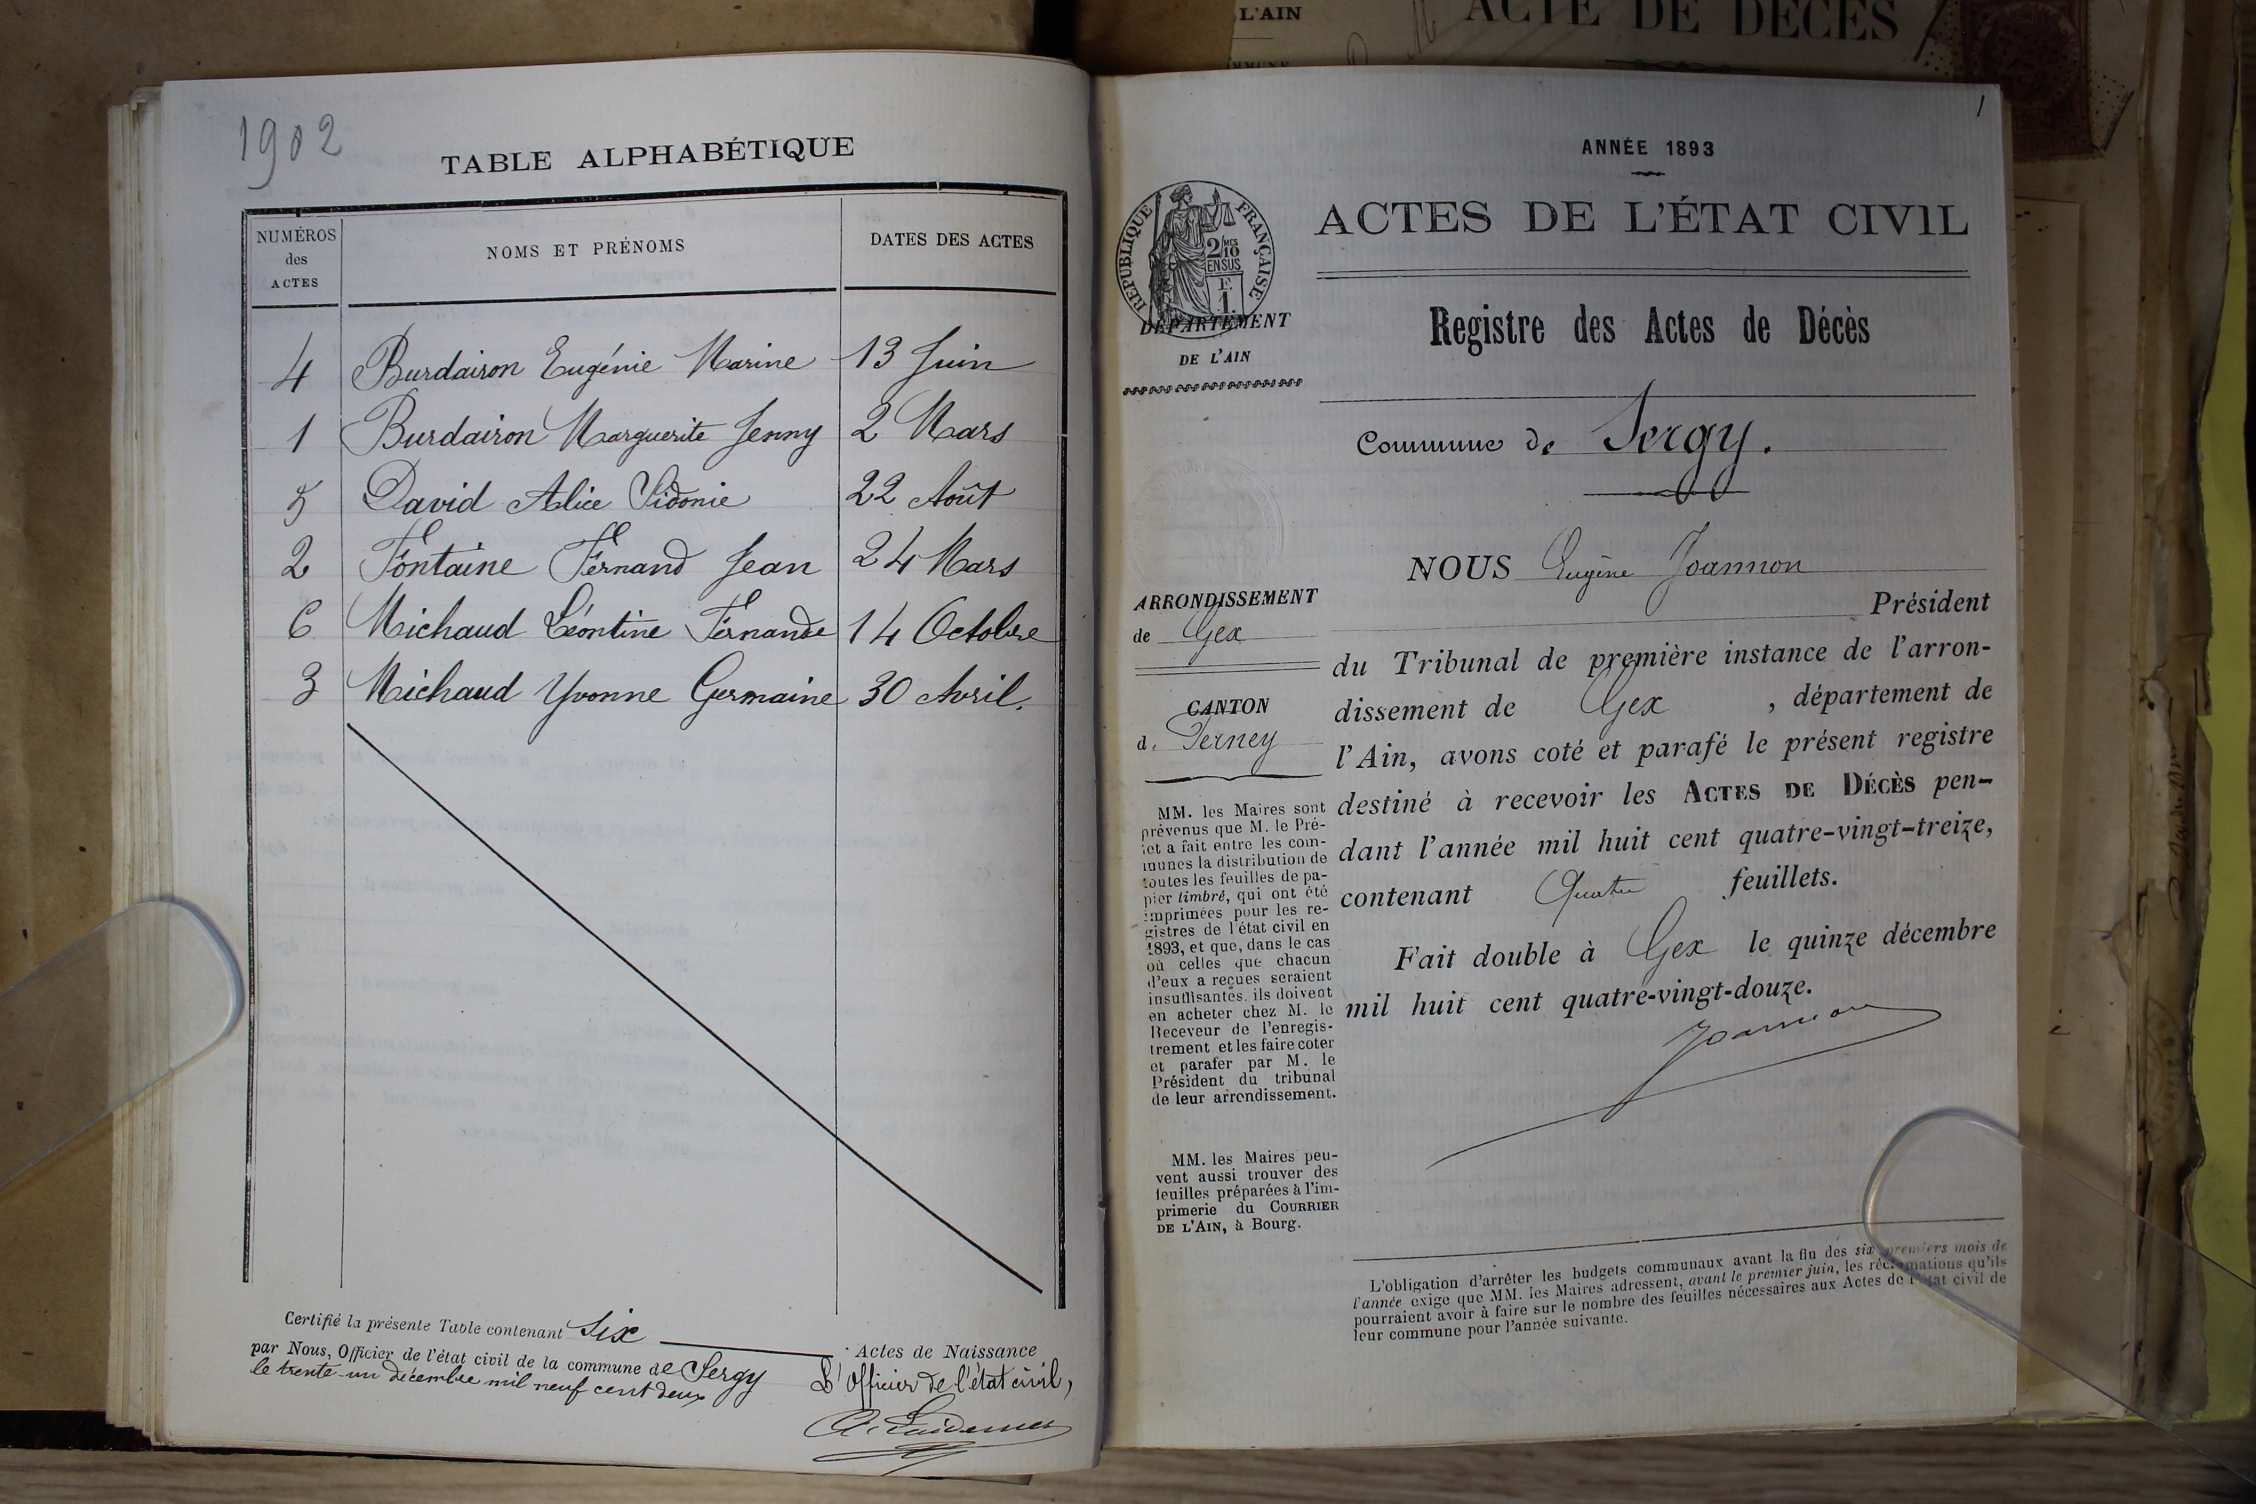 1902
TABLE ALPHABÉTIQUE
NUMÉROS
des
ACTES
NOMS ET PRÉNOMS
DATES DES ACTES
4 Burdairon Eugénie Marine 13 Juin
1 Burdairon Marguerite Jenny 2 Mars
5 David Alice Sidonie 22 Août
2 Fontaine Fernand Jean 24 Mars
6 Michaud Léontine Fernande 14 Octobre
3 Michaud Yvonne Germaine 30 Avril.
Certifié la présente Table contenant Six Actes de Naissance
par Nous, Officier de l'état civil de la commune de Sergy
le trente-un décembre mil neuf cent deux
L'Officier de l'état civil,
L'AIN
ACTE DE DÉCÈS
1
ANNÉE 1893
ACTES DE L'ÉTAT CIVIL
RÉPUBLIQUE FRANÇAISE
2/10
EN SUS
F.
1.
DÉPARTEMENT
DE L'AIN
Registre des Actes de Décès
Commune de Sergy.
ARRONDISSEMENT
de Gex
CANTON
de Ferney
MM. les Maires sont
prévenus que M. le Pré-
fet a fait entre les com-
munes la distribution de
toutes les feuilles de pa-
pier timbré, qui ont été
imprimées pour les re-
gistres de l'état civil en
1893, et que, dans le cas
où celles que chacun
d'eux a reçues seraient
insuffisantes, ils doivent
en acheter chez M. le
Receveur de l'enregis-
trement et les faire coter
et parafer par M. le
Président du tribunal
de leur arrondissement.
MM. les Maires peu-
vent aussi trouver des
feuilles préparées à l'im-
primerie du COURRIER
DE L'AIN, à Bourg.
NOUS Eugène Joannon
Président
du Tribunal de première instance de l'arron-
dissement de Gex, département de
l'Ain, avons coté et parafé le présent registre
destiné à recevoir les ACTES DE DÉCÈS pen-
dant l'année mil huit cent quatre-vingt-treize,
contenant Quatre feuillets.
Fait double à Gex le quinze décembre
mil huit cent quatre-vingt-douze.
Joannon
L'obligation d'arrêter les budgets communaux avant la fin des six premiers mois de
l'année exige que MM. les Maires adressent, avant le premier juin, les réclamations qu'ils
pourraient avoir à faire sur le nombre des feuilles nécessaires aux Actes de l'état civil de
leur commune pour l'année suivante.